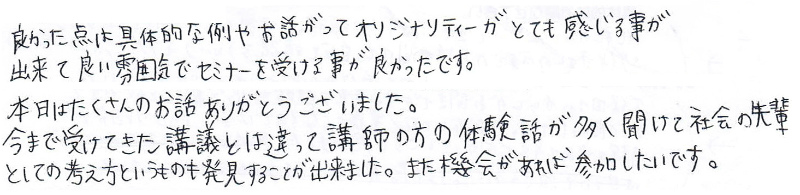 良かった点は具体的な例やお話がってオリジナリティーがとても感じる事が
出来て良い雰囲気でセミナーを受ける事が良かったです。
本日はたくさんのお話ありがとうございました。
今まで受けてきた講議とは違って講師の方の体験話が多く聞けて社会の先輩
としての考え方というものも発見することが出来ました。また機会があれば参加したいです。